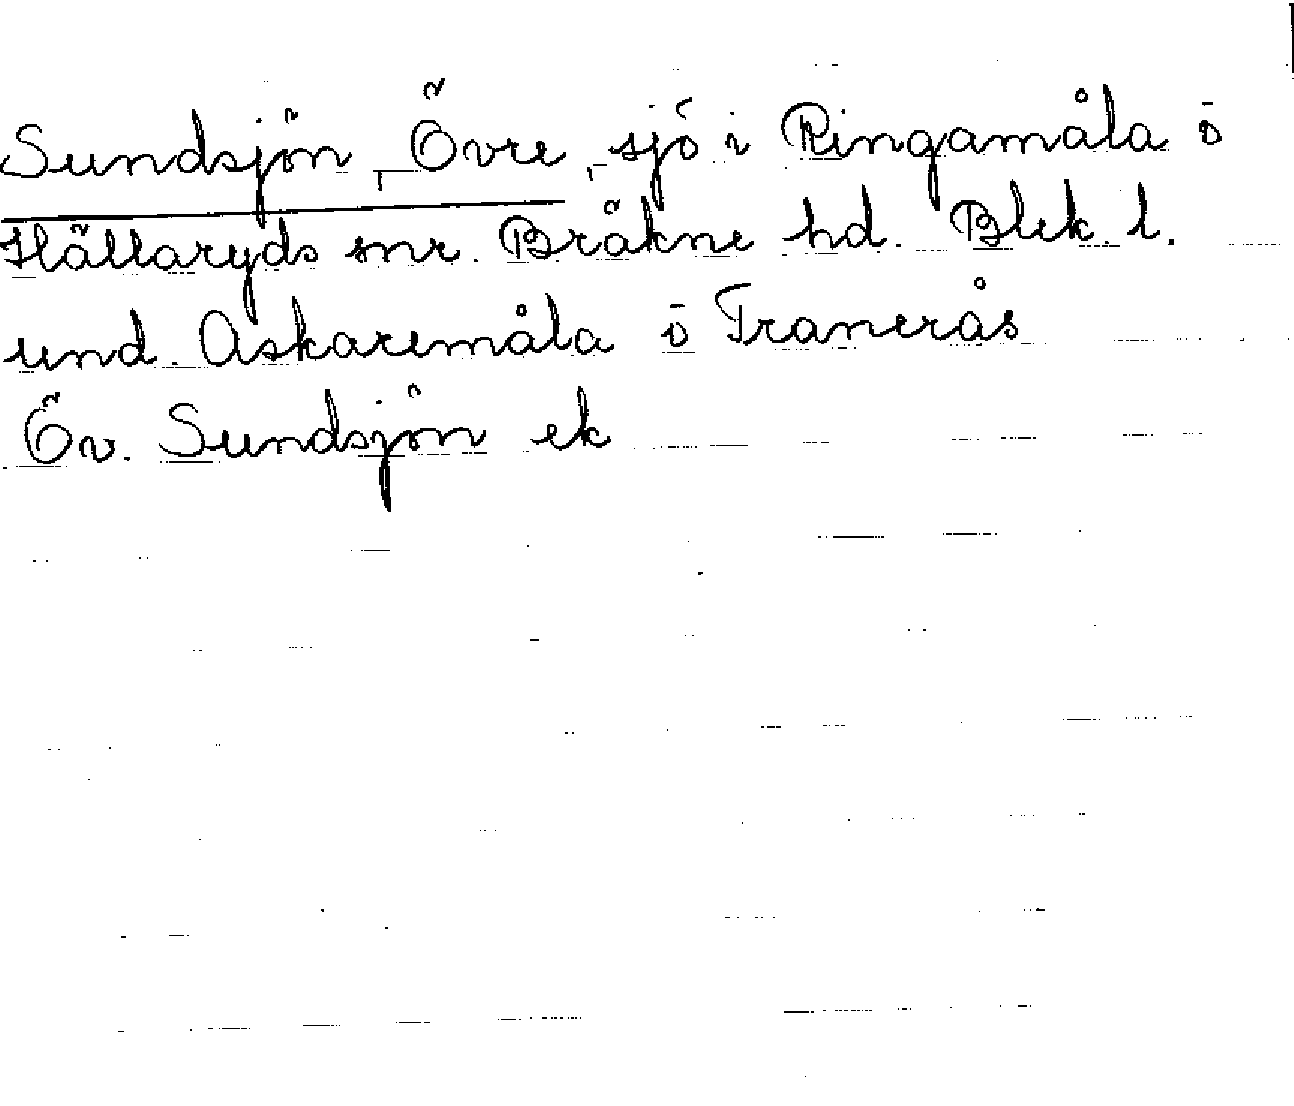 Sundsjön, Övre, sjö i Ringamåla o
Hällaryds snr. Bräkne hd. Blek. l.
und. Askaremåla o Tranerås
Öv. Sundsjön ek